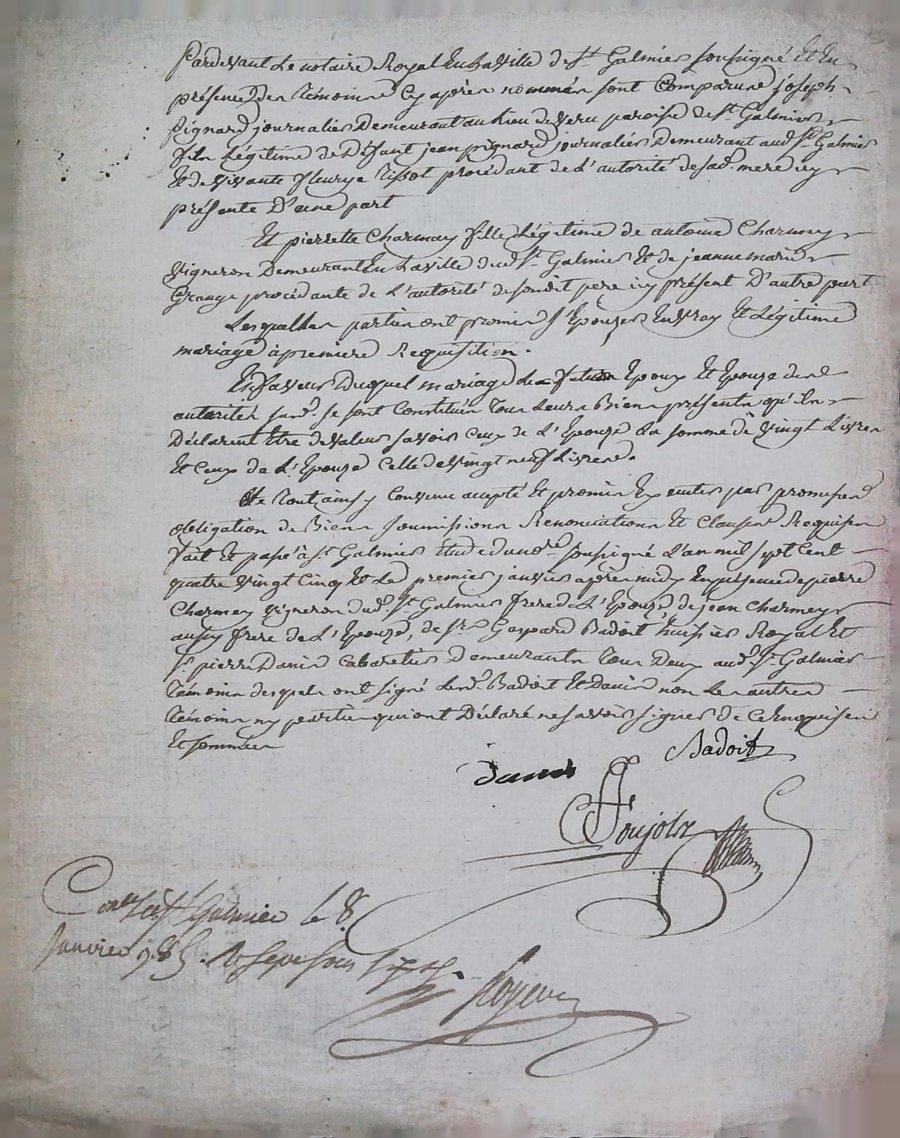 Pardevant Le notaire Royal En La ville de St Galmier soussigné Et En
présence des Témoins Cy après nommés sont Comparus joseph
pignard journalier Demeurant au Lieu de veru paroisse de St Galmier
fils Légitime de Défunt jean pignard journalier Demeurant aud. St Galmier
Et de vivante fleurye Tissot procédant de L'autorité de sad. mere icy
présente D'une part
Et pierrette Charmay fille Légitime de antoine Charmey
vigneron Demeurant En La ville dud. St Galmier Et de jeanne marie
Grange procédante de L'autorité de sondit père icy présent D'autre part
Lesquelles parties ont promis s'Epouser En vray Et Légitime
mariage à première Requisition.
En faveur Duquel mariage Les futurs Epoux Et Epouze des
autorités susd. se sont Constitués Tous Leurs Biens présents qu'ils
Déclarent Etre de valeur savoir Ceux de L'Epoux La somme de vingt Livres
Et Ceux de L'Epouze Celle de vingt neuf Livres.
Le Tout ainsy Convenu accepté Et promis Exécuter par promesses
obligation de Biens soumissions Renonciations Et Clauses Requises
fait Et passé à St Galmier Etude du no.re soussigné L'an mil sept Cent
quatre vingt Cinq Et Le premier janvier après midy En présence de pierre
Charmey vigneron dud. St Galmier frere de L'Epouze, de jean Charmey
aussy frere de L'Epouze, de Sr Gaspard Badoit huissier Royal Et
Sr pierre Danis Cabaretier Demeurants Tous Deux aud. St Galmier
Témoins desquels ont signé Lesd. Badoit Et Danis non Les autres
Témoins ny parties qui ont Déclaré ne savoir signer de Ce Enquis
Et sommées
danis Badoit
Poujolz
Con.lé à St Galmier le 8.
Janvier 1785. R sept sous